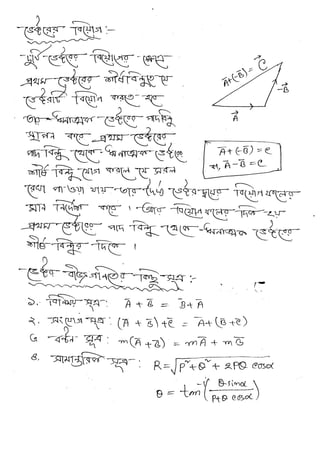 ভেক্টরের বিয়োগ :-
দুটি ভেক্টরের বিয়োগের ক্ষেত্রে
প্রথম ভেক্টরের শীর্ষ বিন্দুতে যে
ভেক্টরটি বিয়োগ করতে হবে
তার ঋনাত্মক ভেক্টরের পাদবিন্দু
স্থাপন করে প্রথম ভেক্টরের
পাদ বিন্দু থেকে ঋনাত্মক ভেক্টরের
শীর্ষ বিন্দু যোগ করলে যে সরল
রেখা পাওয়া যায় তার দৈর্ঘ্য ভেক্টরদ্বয়ের বিয়োগফলের
মান নির্দেশ করে । আর বিয়োগফলের দিক হয়
প্রথম ভেক্টরের পাদ বিন্দু থেকে ঋনাত্মক ভেক্টরের
শীর্ষ বিন্দুর দিকে ।
A+(-B) = C
-B
A
A+(-B) = C
বা, A - B = C
ভেক্টর বীজগণিতের কিছু সূত্র :-
১. বিনিময় সূত্র : A + B = B + A
২. সংযোগ সূত্র : (A + B) + C = A + (B + C)
৩ বন্টন সূত্র : m(A + B) = mA + mB
৪. সামান্তরিক সূত্র : R = √P² + Q² + 2PQ cosα
θ = tan⁻¹ (Q sinα / P+Q cosα)